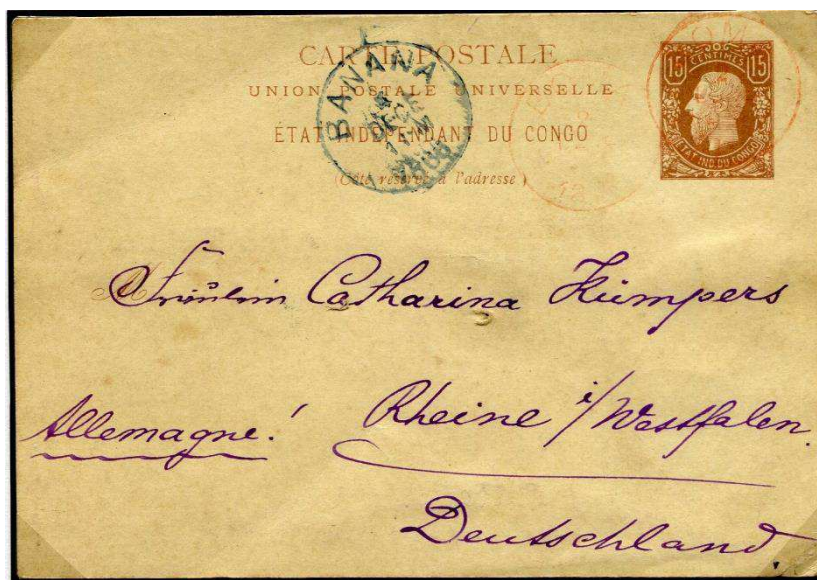 CARTE POSTALE
UNION POSTALE UNIVERSELLE
ÉTAT INDÉPENDANT DU CONGO
(Côté réservé à l'adresse)
15 CENTIMES 15
ÉTAT IND. DU CONGO
BANANA
Fräulein Catharina Kümpers
Allemagne!
Rheine i/Westfalen.
Deutschland